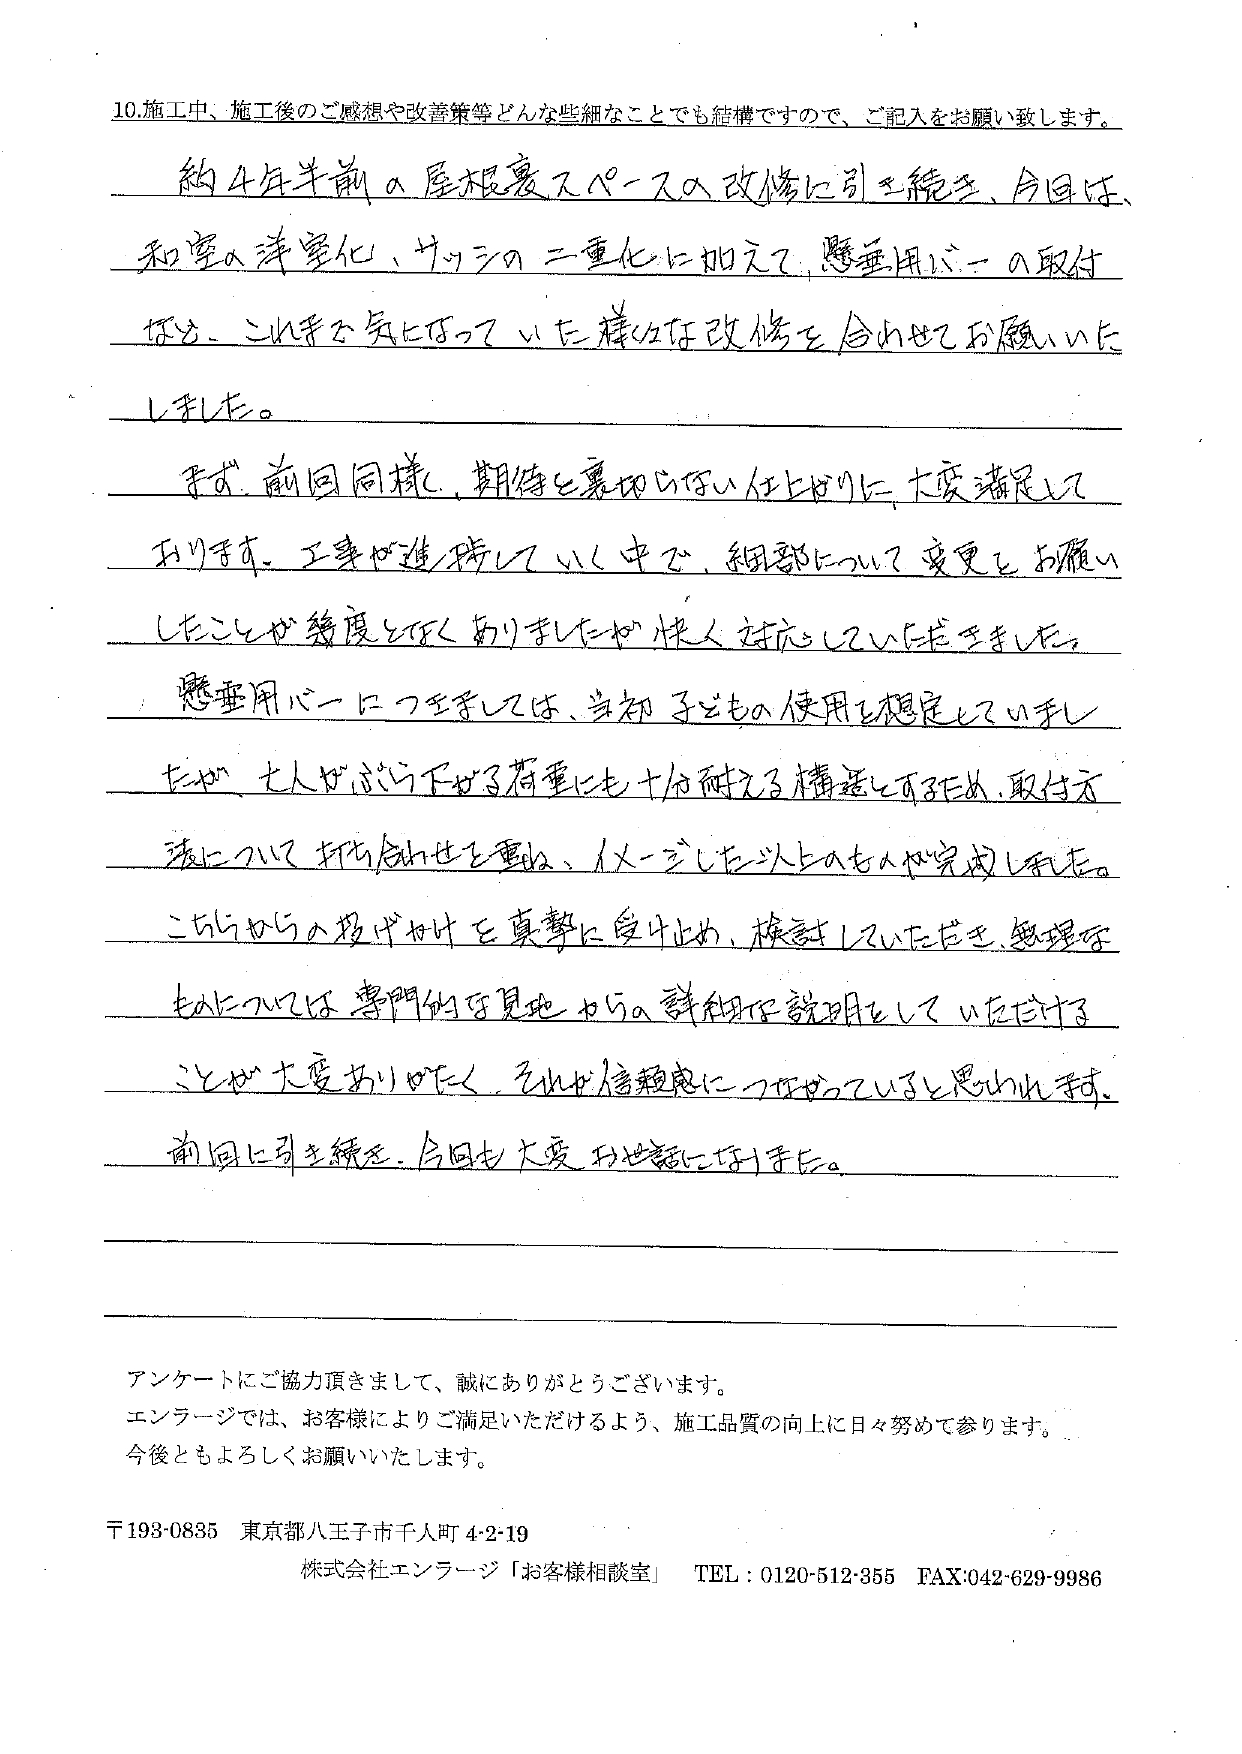 10.施工中、施工後のご感想や改善策等どんな些細なことでも結構ですので、ご記入をお願い致します。
約4年半前の屋根裏スペースの改修に引き続き、今回は、
和室の洋室化、サッシの二重化に加えて、懸垂用バーの取付
など、これまで気になっていた様々な改修を合わせてお願いいた
しました。
まず、前回同様、期待を裏切らない仕上がりに、大変満足して
おります。工事が進捗していく中で、細部について変更をお願い
したことが幾度となくありましたが快く対応していただきました。
懸垂用バーにつきましては、当初子どもの使用を想定していまし
たが、大人がぶら下がる荷重にも十分耐える構造とするため、取付方
法について打ち合わせを重ね、イメージした以上のものが完成しました。
こちらからの投げかけを真摯に受け止め、検討していただき、無理な
ものについては専門的な見地からの詳細な説明をしていただける
ことが大変ありがたく、それが信頼感につながっていると思われます。
前回に引き続き、今回も大変お世話になりました。
アンケートにご協力頂きまして、誠にありがとうございます。
エンラージでは、お客様によりご満足いただけるよう、施工品質の向上に日々努めて参ります。
今後ともよろしくお願いいたします。
〒193-0835 東京都八王子市千人町 4-2-19
株式会社エンラージ「お客様相談室」 TEL：0120-512-355 FAX:042-629-9986